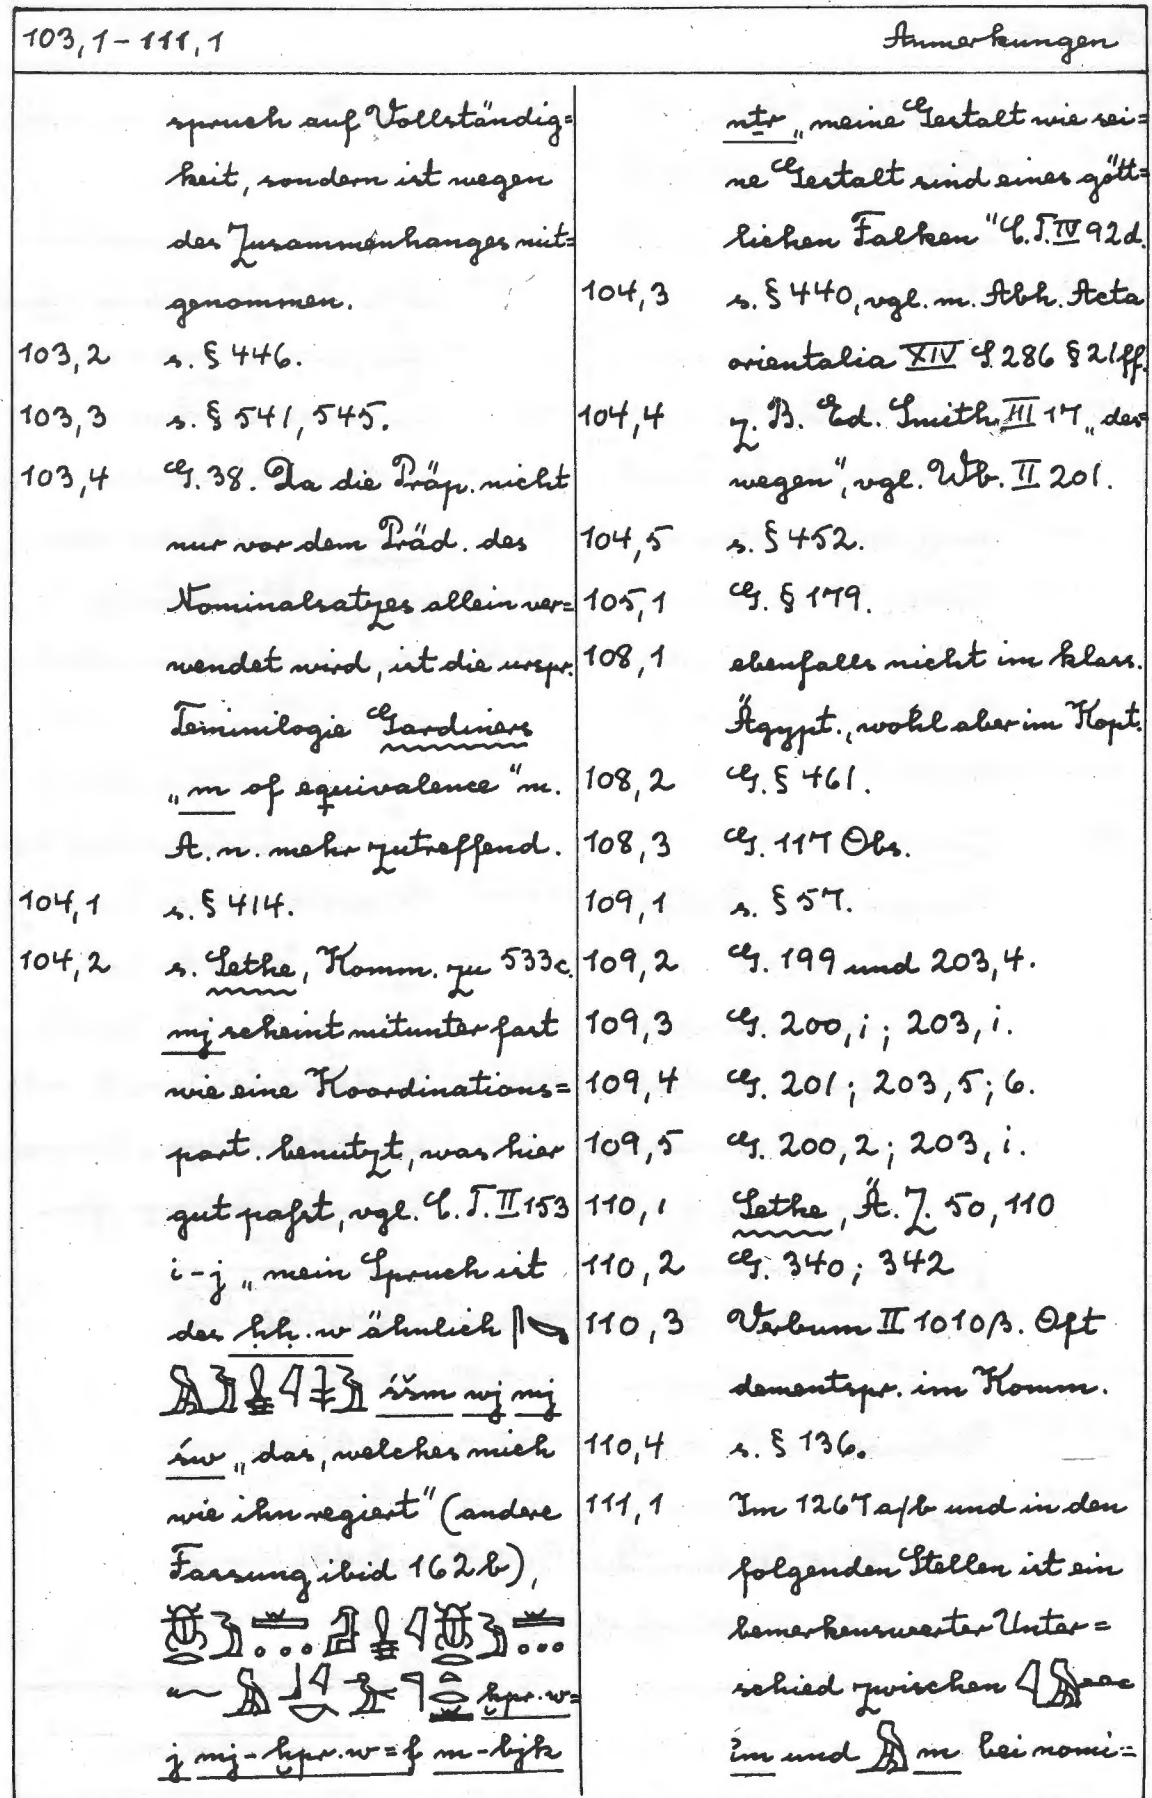 103,1-111,1 Anmerkungen
spruch auf Vollständig=
keit, sondern ist wegen
des Zusammenhanges mit=
genommen.
103,2 s. § 446.
103,3 s. § 541, 545.
103,4 G. 38. Da die Präp. nicht
nur vor dem Präd. des
Nominalsatzes allein ver=
wendet wird, ist die urspr.
Teminilogie Gardiners
„m of equivalence" m.
A. n. mehr zutreffend.
104,1 s. § 414.
104,2 s. Sethe, Komm. zu 533c.
mj scheint mitunter fast
wie eine Koordinations=
part. benutzt, was hier
gut paßt, vgl. C.T. II 153
i-j „mein Spruch ist
des ḥḥ.w ähnlich
śšm wj mj
św „das, welches mich
wie ihn regiert" (andere
Fassung ibid 162 b),
ḫpr.w=
j mj-ḫpr.w=f m-bjk
nṯr „meine Gestalt wie sei=
ne Gestalt sind eines gött=
lichen Falken" C.T. IV 92d.
104,3 s. § 440, vgl. m. Abh. Acta
orientalia XIV S. 286 § 21ff.
104,4 z. B. Ed. Smith III 17 „des=
wegen", vgl. Wb. II 201.
104,5 s. § 452.
105,1 G. § 179.
108,1 ebenfalls nicht im klass.
Ägypt., wohl aber im Kopt.
108,2 G. § 461.
108,3 G. 117 Obs.
109,1 s. § 57.
109,2 G. 199 und 203,4.
109,3 G. 200,i; 203,i.
109,4 G. 201; 203,5; 6.
109,5 G. 200,2; 203,i.
110,1 Sethe, Ä.Z. 50,110
110,2 G. 340; 342
110,3 Verbum II 1010β. Oft
dementspr. im Komm.
110,4 s. § 136.
111,1 Im 1267 a/b und in den
folgenden Stellen ist ein
bemerkenswerter Unter=
schied zwischen
im und m bei nomi=